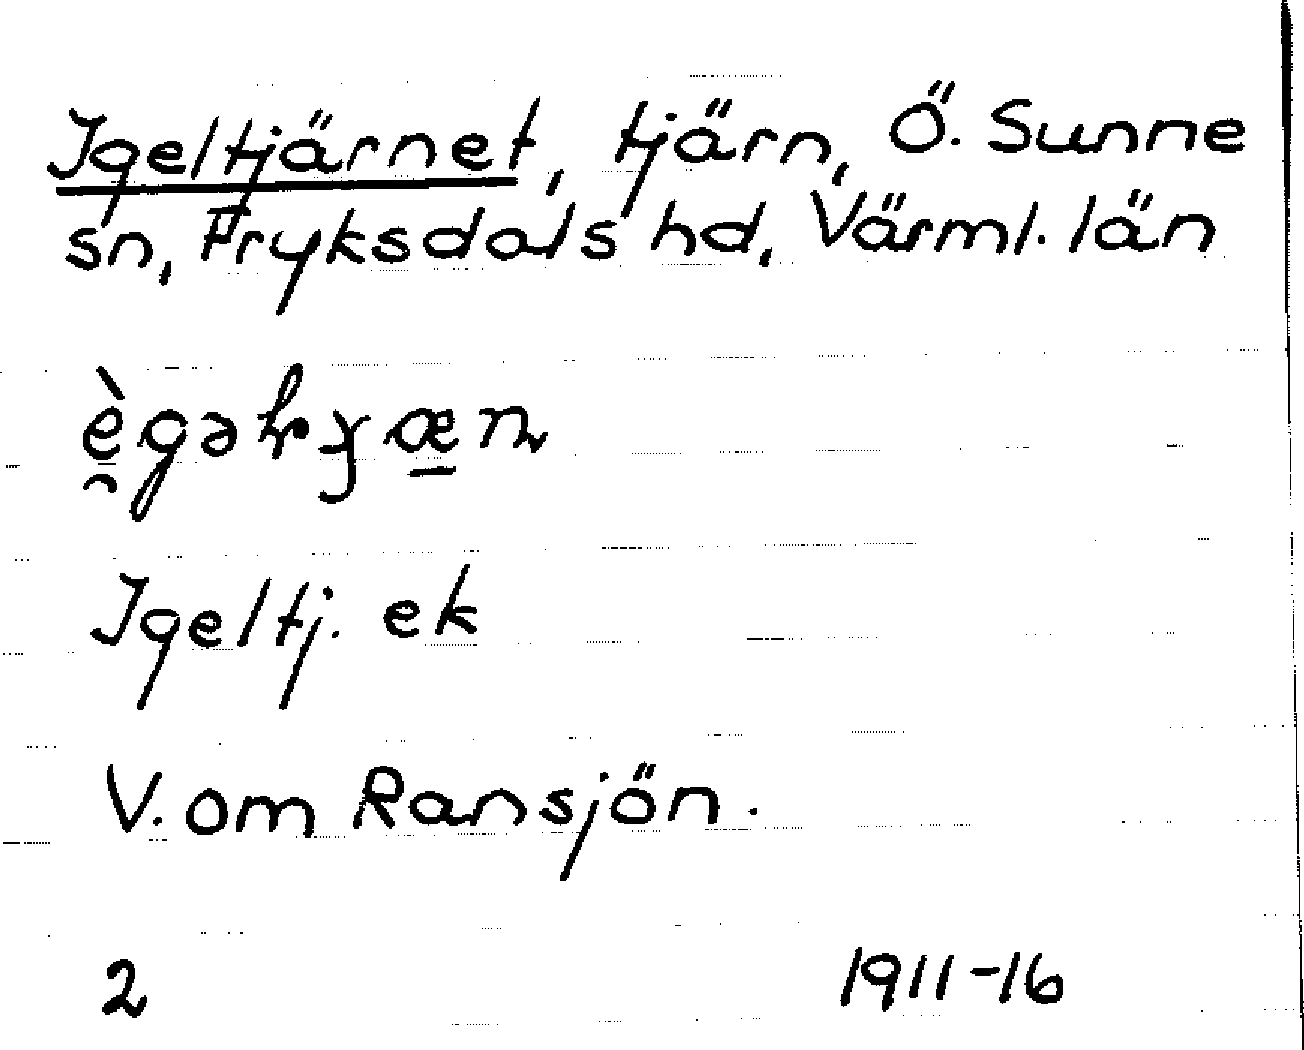 Igeltjärnet, tjärn, Ö. Sunne
sn, Fryksdals hd, Värml. län
Igeltj. ek
V. om Ransjön.
2 1911-16